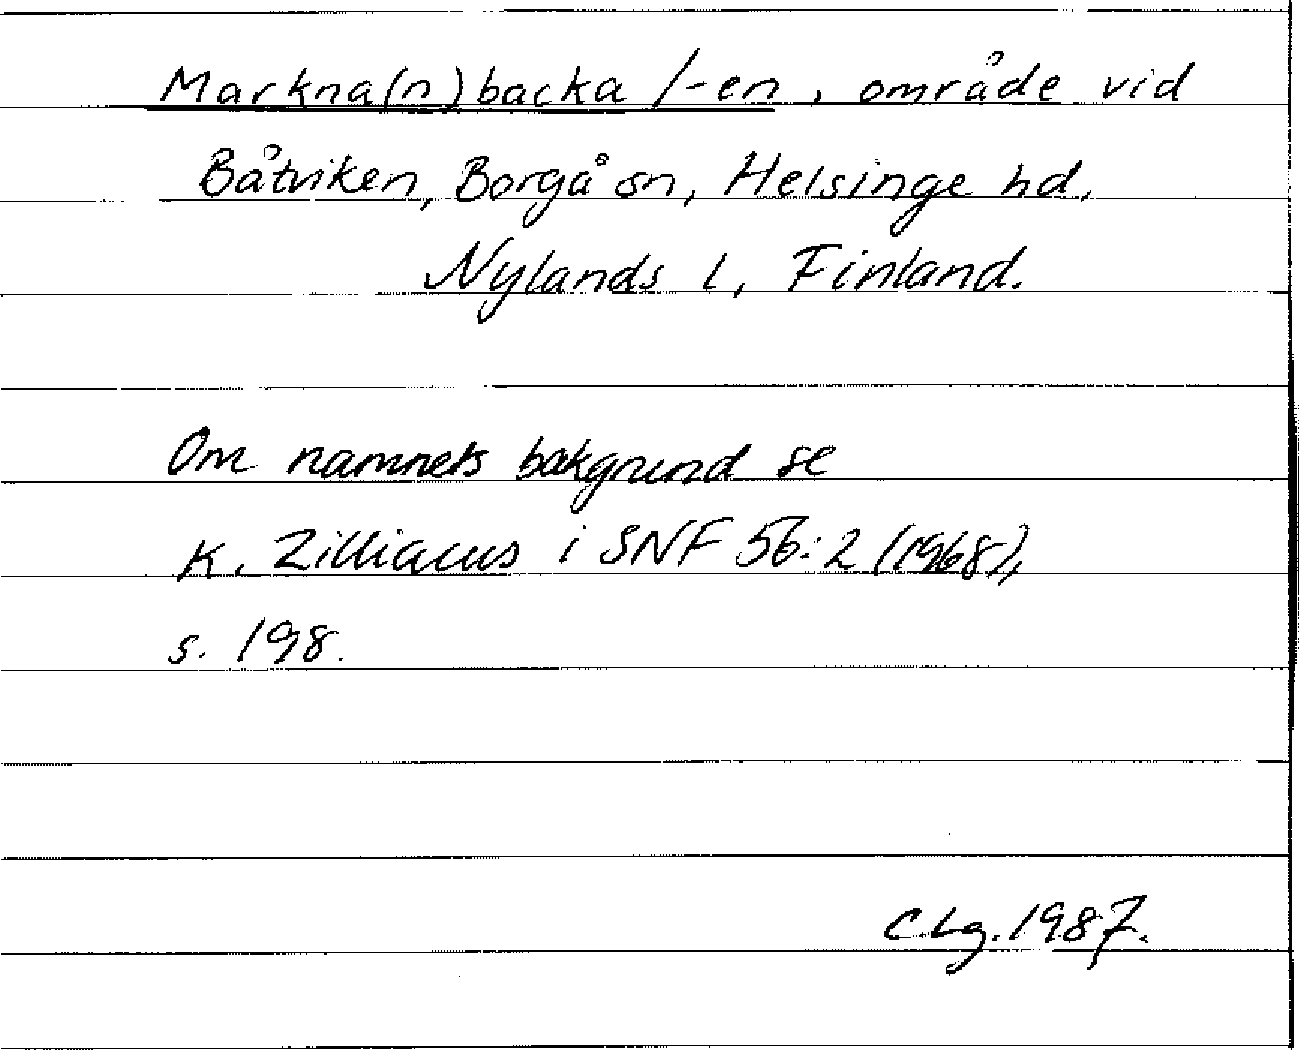 Markna(n)backa/-en, område vid
Båtviken, Borgå sn, Helsinge hd,
Nylands l, Finland.
Om namnets bakgrund se
K. Zilliacus i SNF 56:2 (1968),
s. 198.
CLg. 1987.